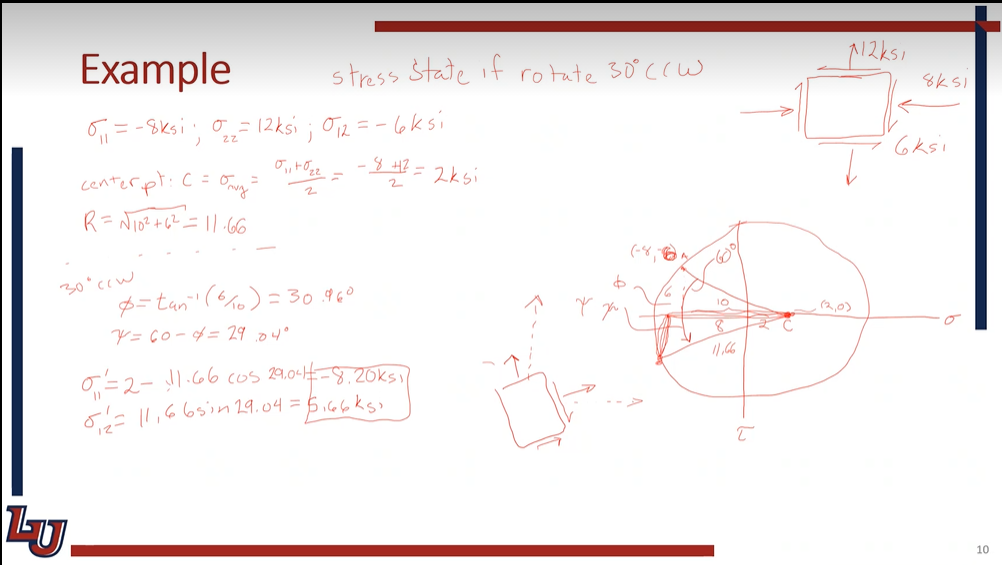 Example
stress state if rotate 30° CCW
12ksi
8ksi
6ksi
σ11 = -8ksi ; σ22 = 12ksi ; σ12 = -6ksi
center pt: C = σavg = (σ11+σ22)/2 = (-8+12)/2 = 2ksi
R = √(10²+6²) = 11.66
30° CCW
ϕ = tan⁻¹(6/10) = 30.96°
ψ = 60 - ϕ = 29.04°
σ'11 = 2 - 11.66 cos 29.04 = -8.20ksi
σ'12 = 11.66 sin 29.04 = 5.66 ksi
(-8,
60°
ϕ
6
10
(2,0)
ψ
8
2
C
σ
11.66
τ
LU
10